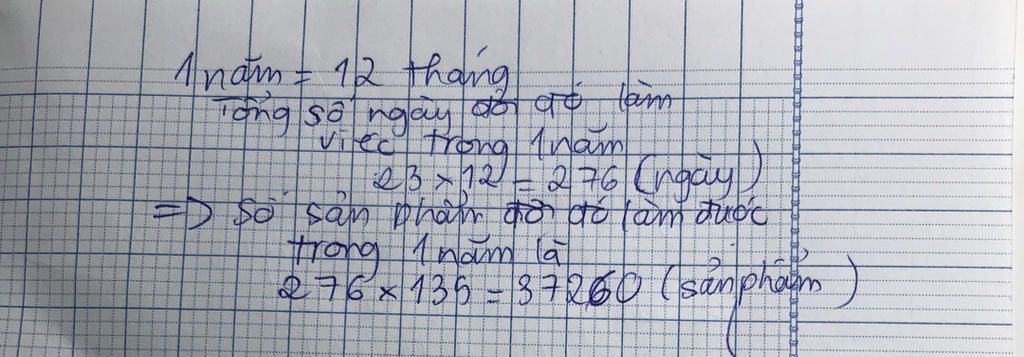 1 năm = 12 tháng
Tổng số ngày đội đó làm
việc trong 1 năm
23 × 12 = 276 (ngày)
=> Số sản phẩm đội đó làm được
trong 1 năm là
276 × 135 = 37260 (sản phẩm)